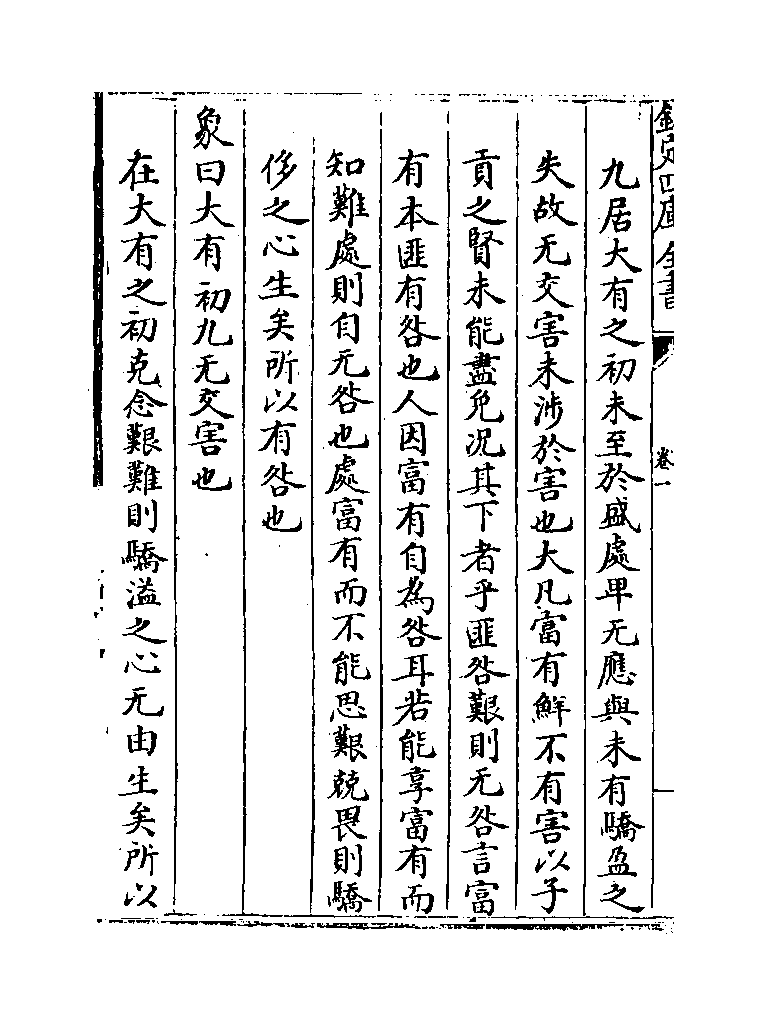 欽定四庫全書
卷一
九居大有之初未至於盛處卑无應與未有驕盈之
失故无交害未涉於害也大凡富有鮮不有害以子
貢之賢未能盡免况其下者乎匪咎艱則无咎言富
有本匪有咎也人因富有自為咎耳若能享富有而
知難處則自无咎也處富有而不能思艱兢畏則驕
侈之心生矣所以有咎也
象曰大有初九无交害也
在大有之初克念艱難則驕溢之心无由生矣所以